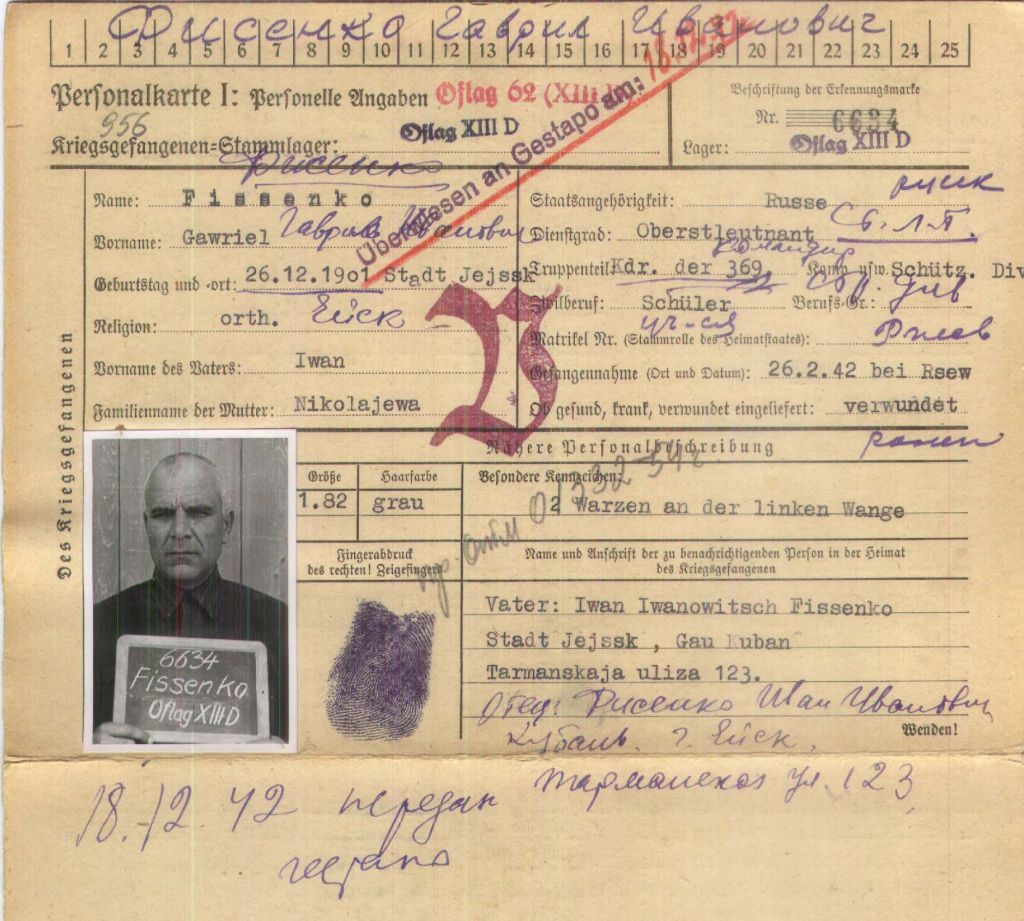 Фисенко Гаврил Иванович
1 2 3 4 5 6 7 8 9 10 11 12 13 14 15 16 17 18 19 20 21 22 23 24 25
Personalkarte I: Personelle Angaben
Oflag 62 (XIII D)
956
Kriegsgefangenen=Stammlager: Oflag XIII D
Überwiesen an Gestapo am: 18.12.42
Beschriftung der Erkennungsmarke
Nr. 6634
Lager: Oflag XIII D
Des Kriegsgefangenen
Фисенко
Name: Fissenko
Vorname: Gawriel Гаврил Иванович
Geburtstag und -ort: 26.12.1901 Stadt Jejssk
Religion: orth. Ейск
Vorname des Vaters: Iwan
Familienname der Mutter: Nikolajewa
Staatsangehörigkeit: Russe русск
Dienstgrad: Oberstleutnant
командир
Truppenteil: Kdr. der 369. Komp. usw. Schütz. Div
Zivilberuf: Schüler Berufs-Gr.: див
уч-ся
Matrikel Nr. (Stammrolle des Heimatstaates):
Ржев
Gefangennahme (Ort und Datum): 26.2.42 bei Rsew
Ob gesund, krank, verwundet eingeliefert: verwundet
ранен
Nähere Personalbeschreibung
Größe Haarfarbe
1.82 grau
Besondere Kennzeichen:
2 Warzen an der linken Wange
Fingerabdruck
des rechten! Zeigefingers
Name und Anschrift der zu benachrichtigenden Person in der Heimat
des Kriegsgefangenen
Vater: Iwan Iwanowitsch Fissenko
Stadt Jejssk , Gau Kuban
Tarmanskaja uliza 123.
Отец: Фисенко Иван Иванович
Wenden!
Кубань. г. Ейск,
Тарманская ул. 123
6634
Fissenko
Oflag XIII D
18.-12.42 передан
гестапо